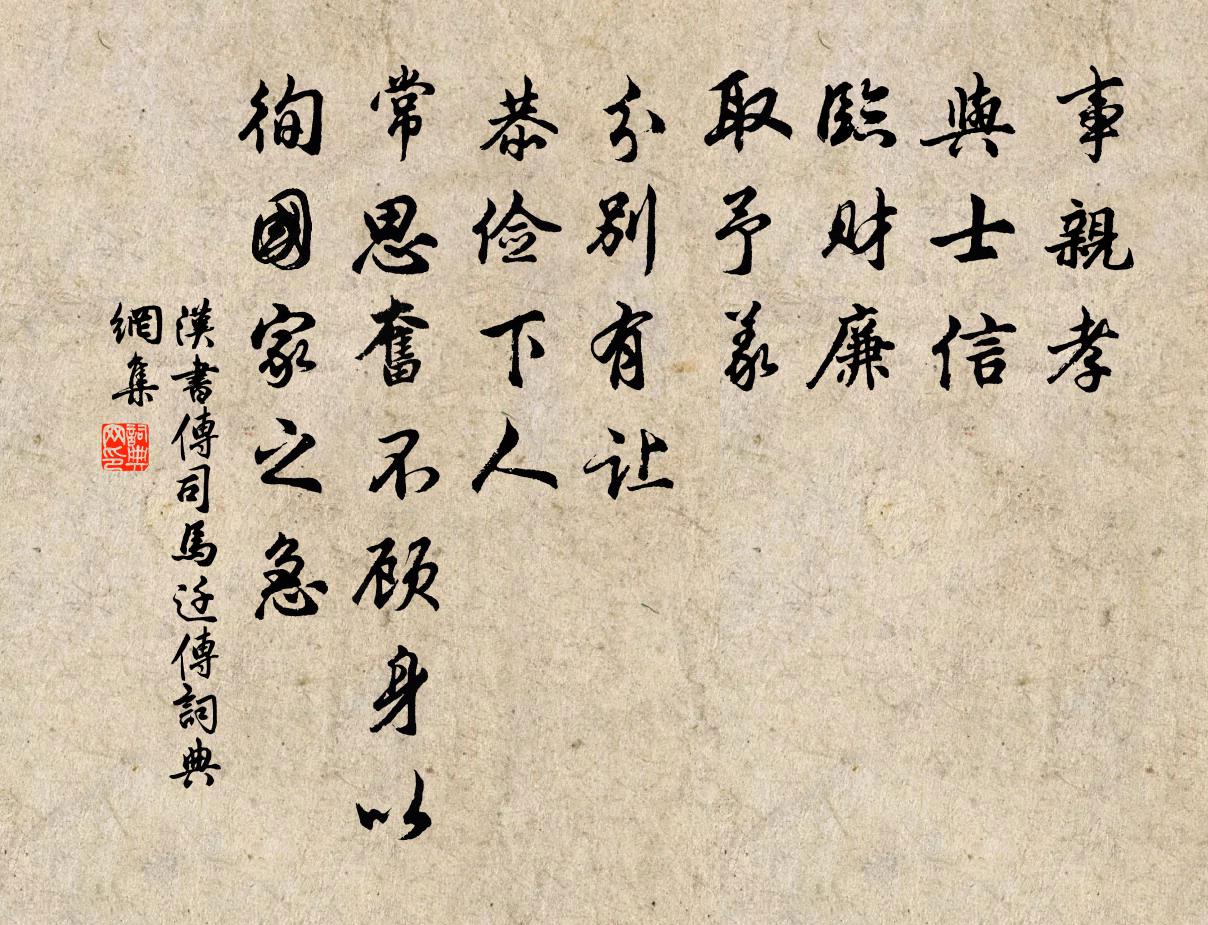 事親孝
與士信
臨財廉
取予義
分別有让
恭俭下人
常思奮不顾身以
徇國家之急
漢書傳司馬迁傳詞典
網集
詞典网印